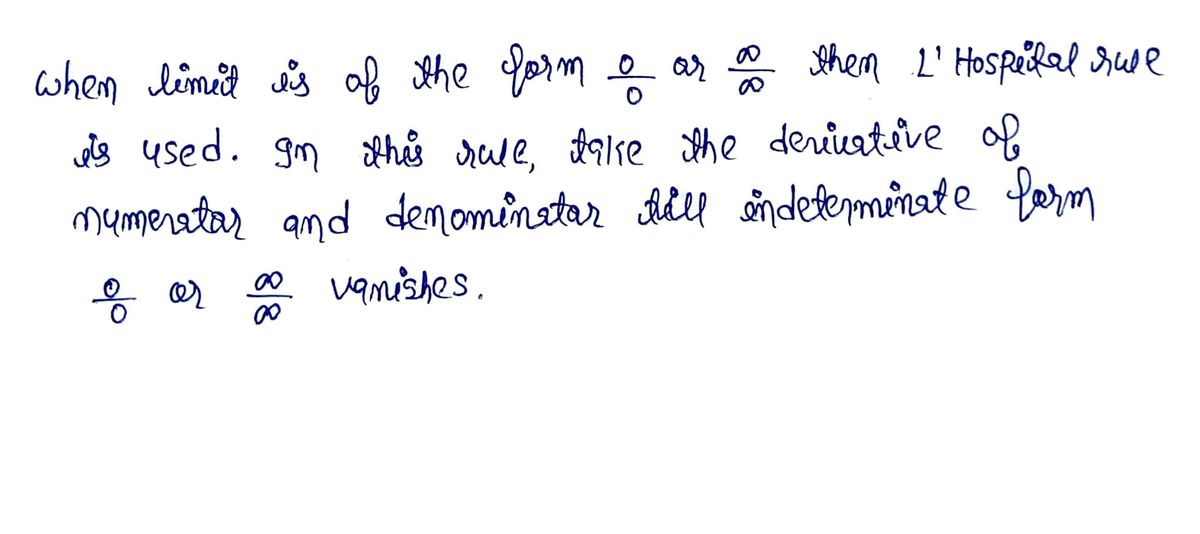 when limit is of the form 0/0 or ∞/∞ then L' Hospital rule
is used. In this rule, take the derivative of
numerator and denominator till indeterminate form
0/0 or ∞/∞ vanishes.